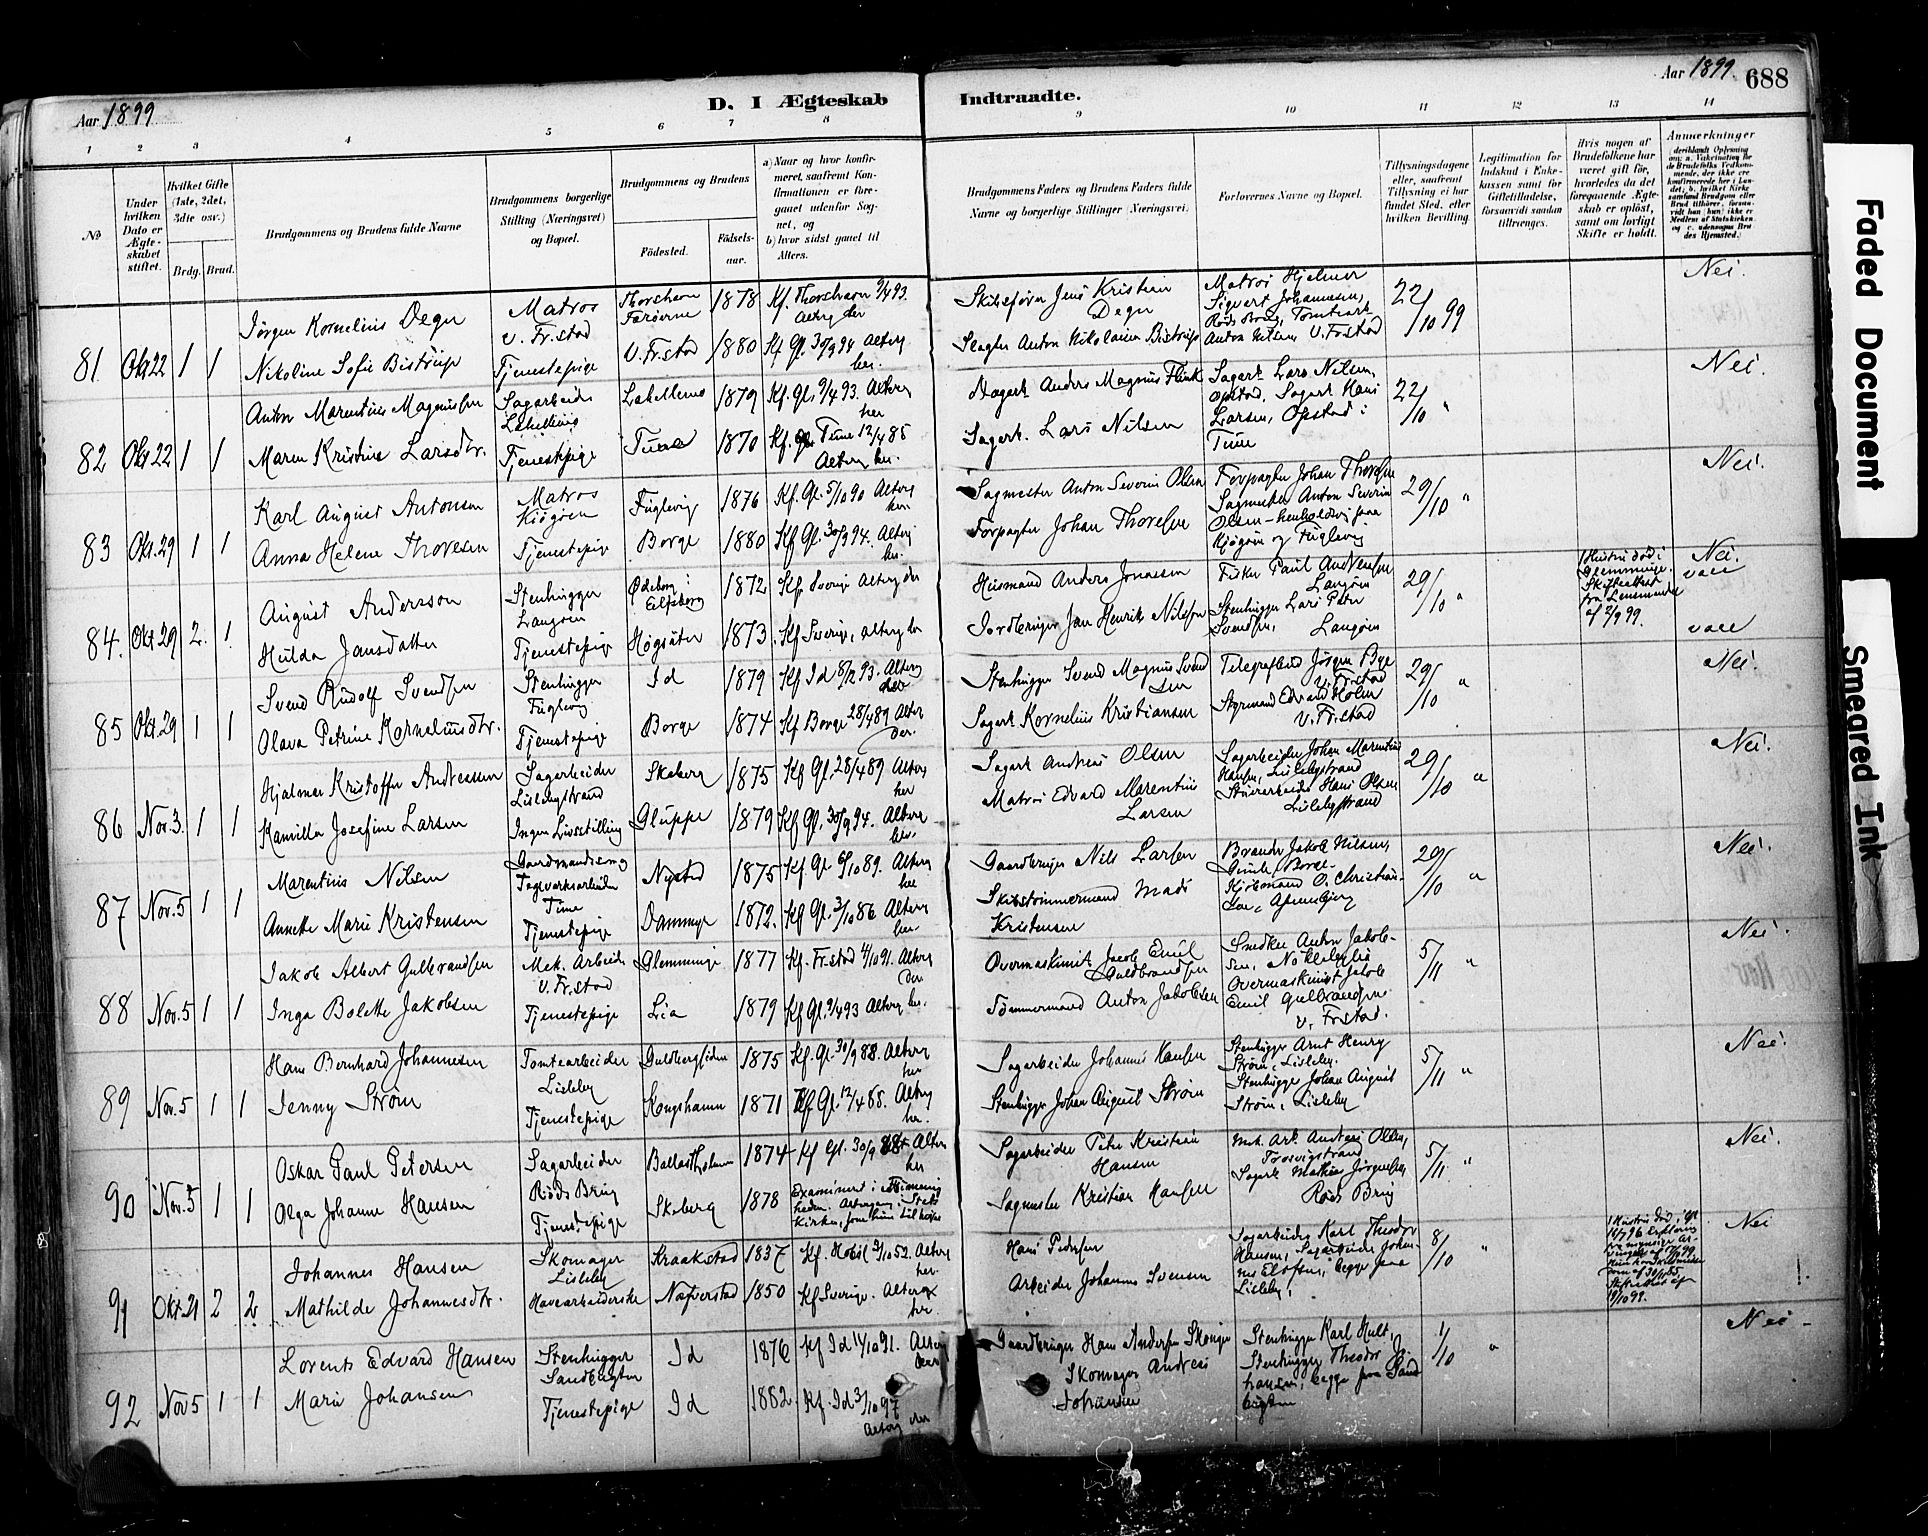 Aar 1899
D. I Ægteskab
Indtraadte.
Aar 1899.
688
1 2 3 4 5 6 7 8 9 10 11 12 13 14
№
Under hvilken Dato er Ægteskabet stiftet.
Hvilket Gifte (1ste, 2det, 3die osv.)
Brdg. Brud.
Brudgommens og Brudens fulde Navne
Brudgommens borgerlige Stilling (Næringsvei) og Bopæl.
Brudgommens og Brudens
Födested.
Födselsaar.
a) Naar og hvor konfirmeret, saafremt Konfirmationen er foregaaet udenfor Sognet, og
b) hvor sidst gaaet til Alters.
Brudgommens Faders og Brudens Faders fulde Navne og borgerlige Stillinger (Næringsvei).
Forlovernes Navne og Bopæl.
Tillysningsdagene eller, saafremt Tillysning ei har fundet Sted, efter hvilken Bevilling.
Legitimation for Indskud i Enkekassen samt for Giftetilladelse, forsaavidt saadan tiltrænges.
Hvis nogen af Brudefolkene har været gift för, hvorledes da det foregaaende Ægteskab er oplöst, samt om lovligt Skifte er holdt.
Anmærkninger
81 Okt 22 1 1
Jørgen Kornelius Degn
Matros V. Fr.stad
Thorshavn Færøerne 1878
Kf. Thorshavn 9/4 93. Alterg. der
Skibsfører Jens Kristian Degn
Matros Hjalmar Sigvert Johannesen,
22/10 99
Nei.
Nikoline Sofie Bistrup
Tjenestepige
V. Fr.stad 1880
Kf Gl. 30/9 94 Alterg her.
Slagter Anton Nikolaisen Bistrup
Anton Nilsen V. Fr.stad
82 Okt 22 1 1
Anton Marentius Magnussen
Sagarbeider
1879
Kf. Gl. 9/4 93. Alterg her
Anders Magnus Flink
Sagarb. Lars Nilsen, Opstad, Sagarb. Hans Larsen, Opstad i Tune
22/10 "
Nei.
Maren Kristine Larsdtr.
Tjenestepige
Tune 1870
Kf. Tune 12/4 85 Alterg her.
Sagarb. Lars Nilsen
83 Okt. 29 1 1
Karl August Antonsen
Matros Kjøgøen
Fuglevig 1876
Kf. Gl. 5/10 90 Alterg her
Sagmester Anton Severin Olsen
Forpagter Johan Thoresen Sagmester Anton Severin Olsen - henholdsvis paa Kjøgøen og Fuglevig
29/10 "
Nei.
Anna Helene Thoresen
Tjenestepige
Borge 1880
Kf Gl. 30/9 94. Alterg her.
Forpagter Johan Thoresen
84. Okt 29 2. 1.
August Andersson
Stenhugger Langøen
Ødeborg i Elfsborg 1872
Kf. Sverige Alterg der
Husmand Anders Jonassen
Fisker Paul Andersen Langøen
29/10 "
1 Hustru død i Glemminge. Skifteattest fra Lensmanden af 2/9 99.
Nei. vacc
Hulda Jansdatter
Tjenestepige
Högsäter 1873
Kf Sverige, alterg her
Jordbruger Jan Henrik Nilssen
Stenhugger Lars Peter Svendsen, Langøen
vacc
85 Okt. 29 1 1
Svend Rudolf Svendsen
Stenhugger Fuglevig
Id 1879
Kf Id 8/12 93. Alterg der
Stenhugger Svend Magnus Svendsen
Telegrafbud Jørgen Bye V. Fr.stad
29/10 "
Nei.
Olava Petrine Korneliusdtr.
Tjenestepige
Borge 1874
Kf Borge 28/4 89 Alter der.
Sagarb. Kornelius Kristiansen
Styrmand Edvard Holm V. Fr.stad
86 Nov. 3. 1 1
Hjalmar Kristoffer Andreassen
Sagarbeider Lislebystrand
Skaberg 1875
Kf Gl. 28/4 89 Alterg her
Sagarb Andreas Olsen
Sagarbeider Johan Marentius Hansen, Lislebystrand
29/10 "
Nei.
Kamilla Josefine Larsen
Ingen Livsstilling
Gluppe 1879
Kf Gl. 30/9 94. Alterg her.
Matros Edvard Marentius Larsen
Hans Olsen Lislebystrand
87 Nov. 5 1 1
Marentius Nilsen
Gaardmandssøn og Teglverksarbeider Tune
1875
Kf Gl. 6/10 89. Alterg her
Gaardbruger Nils Larsen
Jakob Nilsen,
29/10 "
Nei.
Annette Marie Kristensen
Tjenestepige
Dammyr 1872.
Kf Gl. 3/10 86 Alterg her.
Skibstømmermand Mads Kristensen
88 Nov. 5 1 1
Jakob Albert Gulbrandsen
Mek. Arbeider V. Fr.stad
Glemminge 1877
Kf. Fr.stad 4/10 91. Alterg der
Overmaskinist Jacob Emil Guldbrandsen
Snedker Anton Jakobsen, Nøkleby lia
5/11 "
Nei.
Inga Bolette Jakobsen
Tjenestepige
Lia 1879
Kf Gl. 9/4 93 Alterg her.
Tømmermand Anton Jakobsen
Overmaskinist Jakob Emil Gulbrandsen V. Fr.stad.
89 Nov. 5 1 1
Hans Bernhard Johannesen
Tomtearbeider Lisleby
Guldbergsiden 1875
Kf. Gl. 30/9 88. Alterg her
Sagarbeider Johannes Hansen
Stenhugger Arnt Henry Strøm, Lisleby.
5/11 "
Nei.
Jenny Strøm
Tjenestepige
Kongshavn 1871
Kf Gl. 12/4 85. Alterg her.
Stenhugger Johan August Strøm
Stenhugger Johan August Strøm, Lisleby
90 Nov. 5 1 1
Oskar Paul Petersen
Sagarbeider Røds Brug
Ballastholmen 1874
Kf Gl. 30/9 88 Alterg her
Sagarbeider Peter Kristian Hansen
Mek. Arb. Andreas Olsen, Trosvigstrand
5/11 "
Nei.
Olga Johanne Hansen
Tjenestepige
Skaberg 1878
Sagmester Kristian Hansen
Sagarb Mathias Jørgensen, Røds Brug
91 Okt. 21 2 2
Johannes Hansen
Skomager Lisleby
Kraakstad 1837
Kf. Hobøl 3/10 52. Alterg her.
Hans Pedersen
Sagarbeider Karl Theodor Hansen, Sagarbeider Johannes Elofsen, begge paa Lisleby.
8/10 "
Nei
Mathilde Johannesdtr.
Havearbeiderske
Näfverstad 1850
Kf Sverige. Alterg her.
Arbeider Johannes Svensen
!
92 Nov 5 1 1
Lorents Edvard Hansen
Stenhugger Sandbugten
Id 1876
Kf Id 11/10 91. Alterg her
Gaardbruger Hans Andersen
Stenhugger Karl Hult, Stenhugger Theodor Johansen, begge paa Sandbugten
1/10 "
Nei -
Marie Johansen
Tjenestepige
Id 1882
Kf. Id 3/10 97 Alterg der
Skomager Andreas Johansen
Faded Document
Smeared Ink